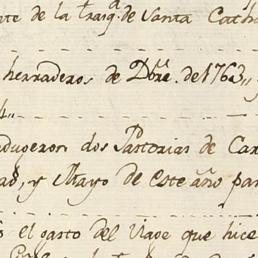 te de la traig.ª de Santa Catha
herraderos de Dbre. de 1763,,
dugeron dos Pastorias de Car
ad, y Mayo de este año par
el gasto del Viage que hice